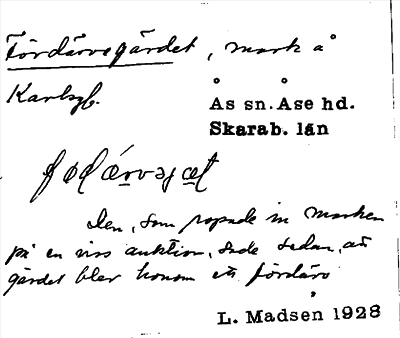 Fördärvegärdet, mark å
Karlsgb.
Ås sn. Åse hd.
Skarab. län
fɷdǽrvəjæt
Den, som ropade in marken
på en viss auktion, sade sedan, att
gärdet blev honom ett fördärv
L. Madsen 1928